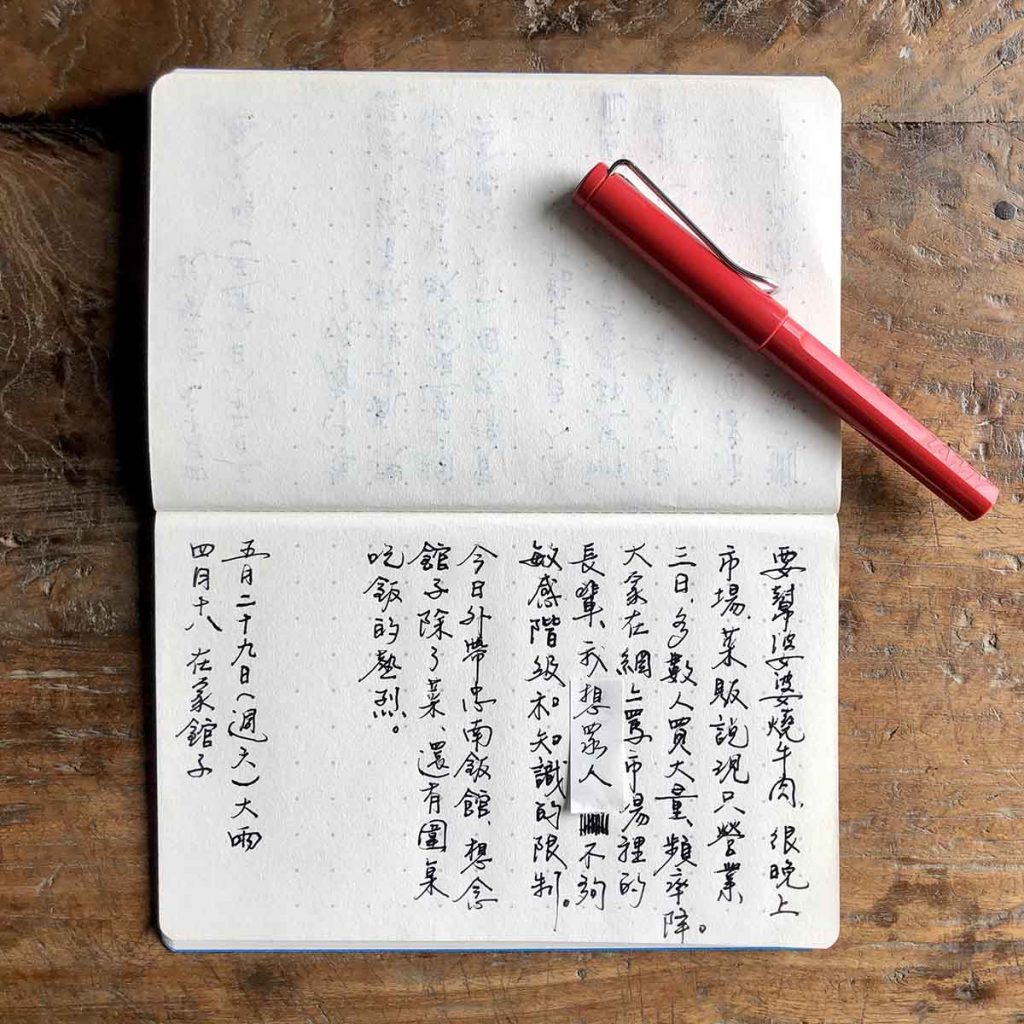 要幫婆婆燒牛肉,很晚上
市場,菜販說現只營業
三日,多數人買大量,頻率降。
大家在網上罵市場裡的
長輩、我想眾人不夠
敏感階級和知識的限制。
今日外帶忠南飯館、想念
館子除了菜、還有圍桌
吃飯的熱烈。
五月二十九日(週六)大雨
四月十八 在家館子